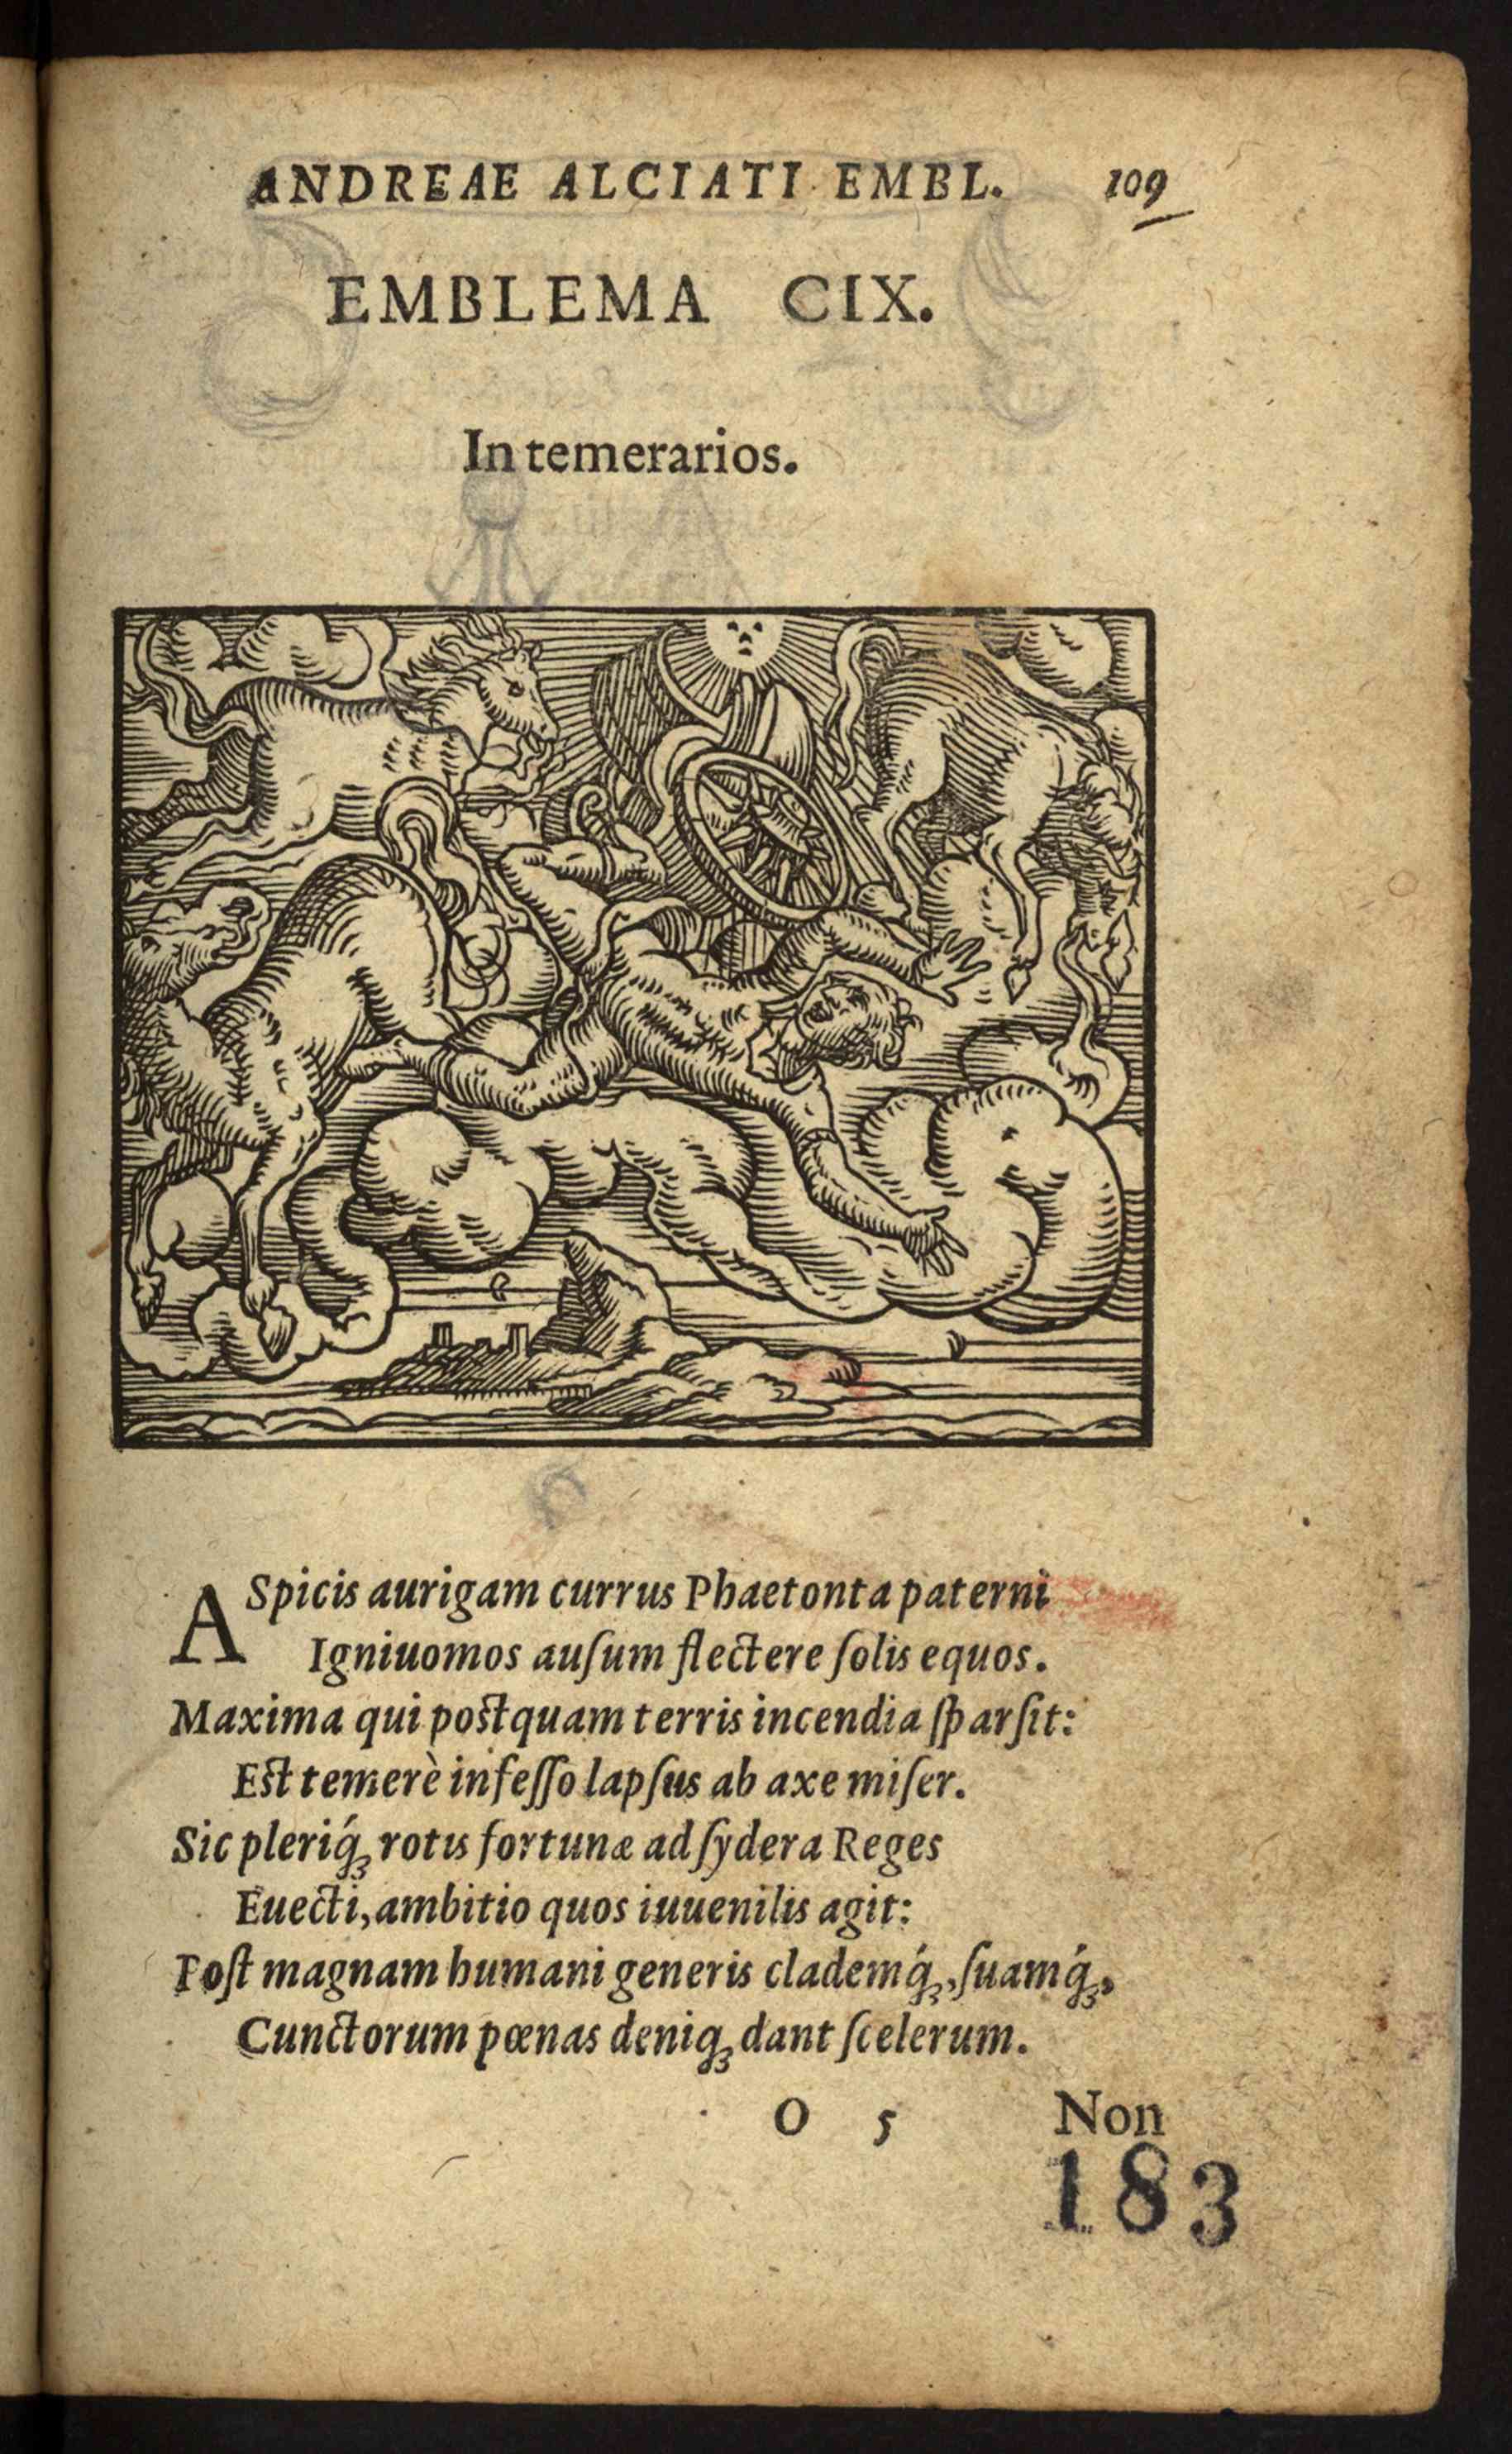 ANDREAE ALCIATI EMBL. 109
EMBLEMA CIX.
In temerarios.
ASpicis aurigam currus Phaetonta paterni
Igniuomos auſum flectere ſolis equos.
Maxima qui poſtquam terris incendia ſparſit:
Eſt temerè inſeſſo lapſus ab axe miſer.
Sic pleriq́ꝫ rotis fortunæ ad ſydera Reges
Euecti, ambitio quos iuuenilis agit:
Poſt magnam humani generis clademq́ꝫ, ſuamq́ꝫ,
Cunctorum pœnas deniqꝫ dant ſcelerum.
O 5 Non
183